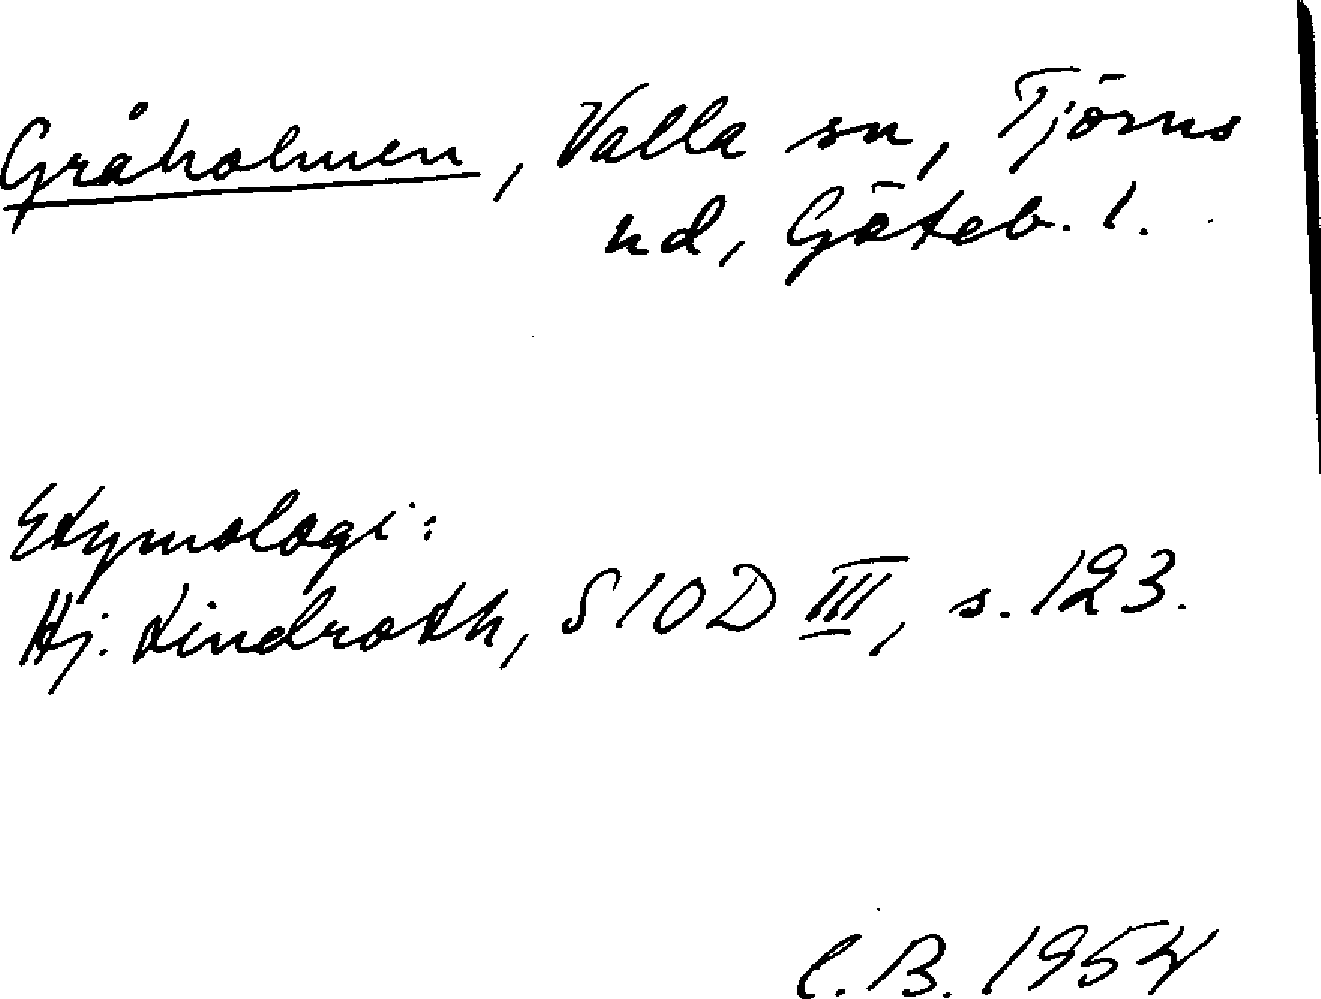 Gråholmen, Valla sn, Tjörns
hd, Göteb. l.
Etymologi:
Hj. Lindroth, SIOD III, s. 123.
C.B. 1954